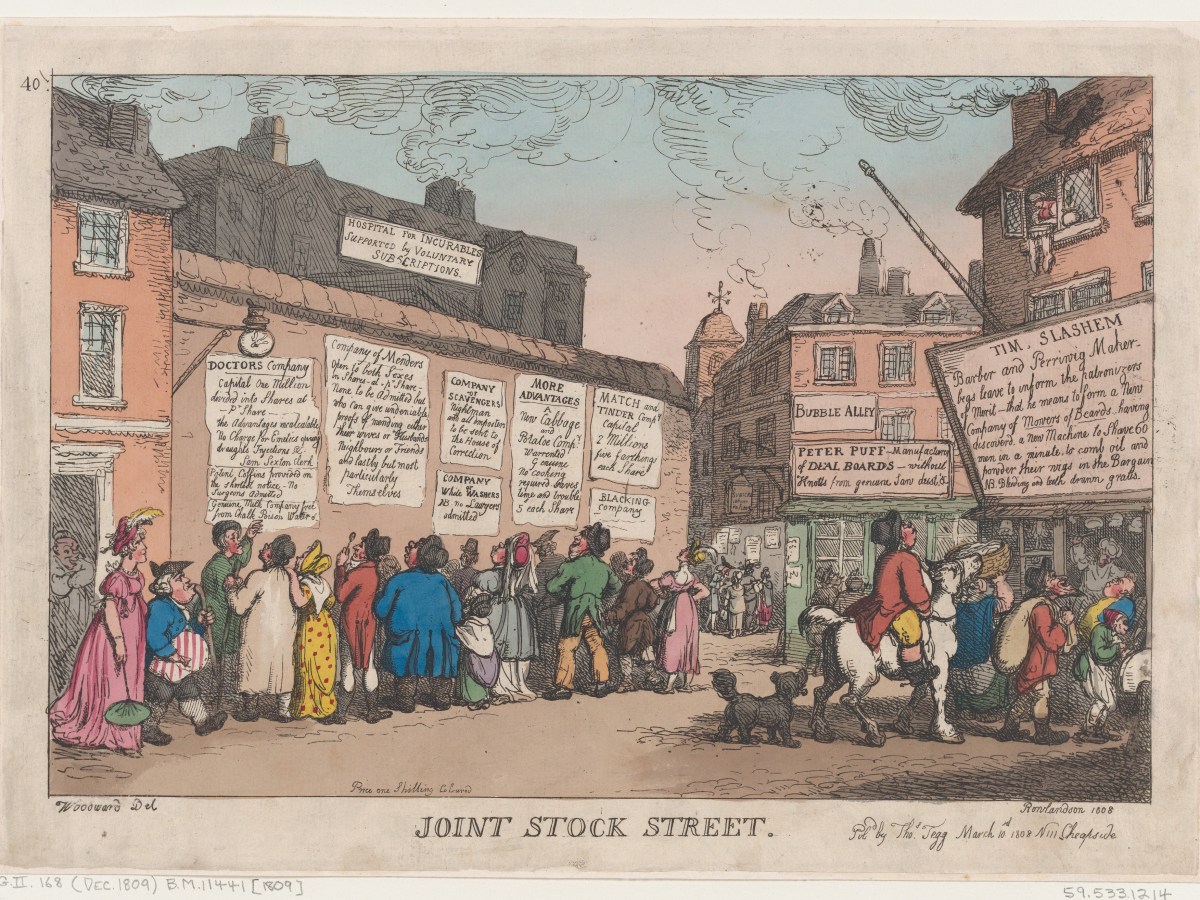 40.
HOSPITAL FOR INCURABLES
Supported by VOLUNTARY
SUBSCRIPTIONS.
DOCTORS Company
Capital One Million
divided into Shares at
- pr Share -
the Advantages incalculable
No Charge for Coaches
draughts Injections &c.
Sam Sexton Clerk
Patent Coffins provided on
the shortest notice - No
Surgeons admitted
Genuine Milk Company free
from Chalk Poison Water &c
Company of Menders
Open to both Sexes
in Shares - at - pr Share -
None to be admitted but
who can give undeniable
proofs of mending either
their wives or Husbands
Neighbours or Friends
and lastly but most
particularly
Themselves
COMPANY
of
SCAVENGERS
Nightman
and all imposters
to be sent to
the House of
Correction
COMPANY
White WASHERS
NB. no Lawyers
admitted
MORE
ADVANTAGES
A
New Cabbage
and
Potatoe Compy.
Warranted
Genuine
No Cooking
required Saves
time and trouble
5 each Share
MATCH and
TINDER Compy
Capital
2 Millions
five farthings
each Share
BLACKING
Company
BUBBLE ALLEY
PETER PUFF - Manufacturer
of DEAL BOARDS - without
Knotts from genuine Saw dust &c
TIM. SLASHEM
Barber and Perriwig Maker -
begs leave to inform the patronizers
of Merit - that he means to form a New
Company of Mowers of Beards - having
discoverd a New Machine to Shave 60
men in a minute. to comb oil and
powder their wigs in the Bargain
NB. Bleeding and teeth drawn gratis.
Price one Shilling Coloured
Woodward Del
Rowlandson 1808
JOINT STOCK STREET.
Pubd by Thos Tegg March 10 1808 N111 Cheapside
G.II. 168 (DEC. 1809) B.M. 11441 [1809]
59.533.1214